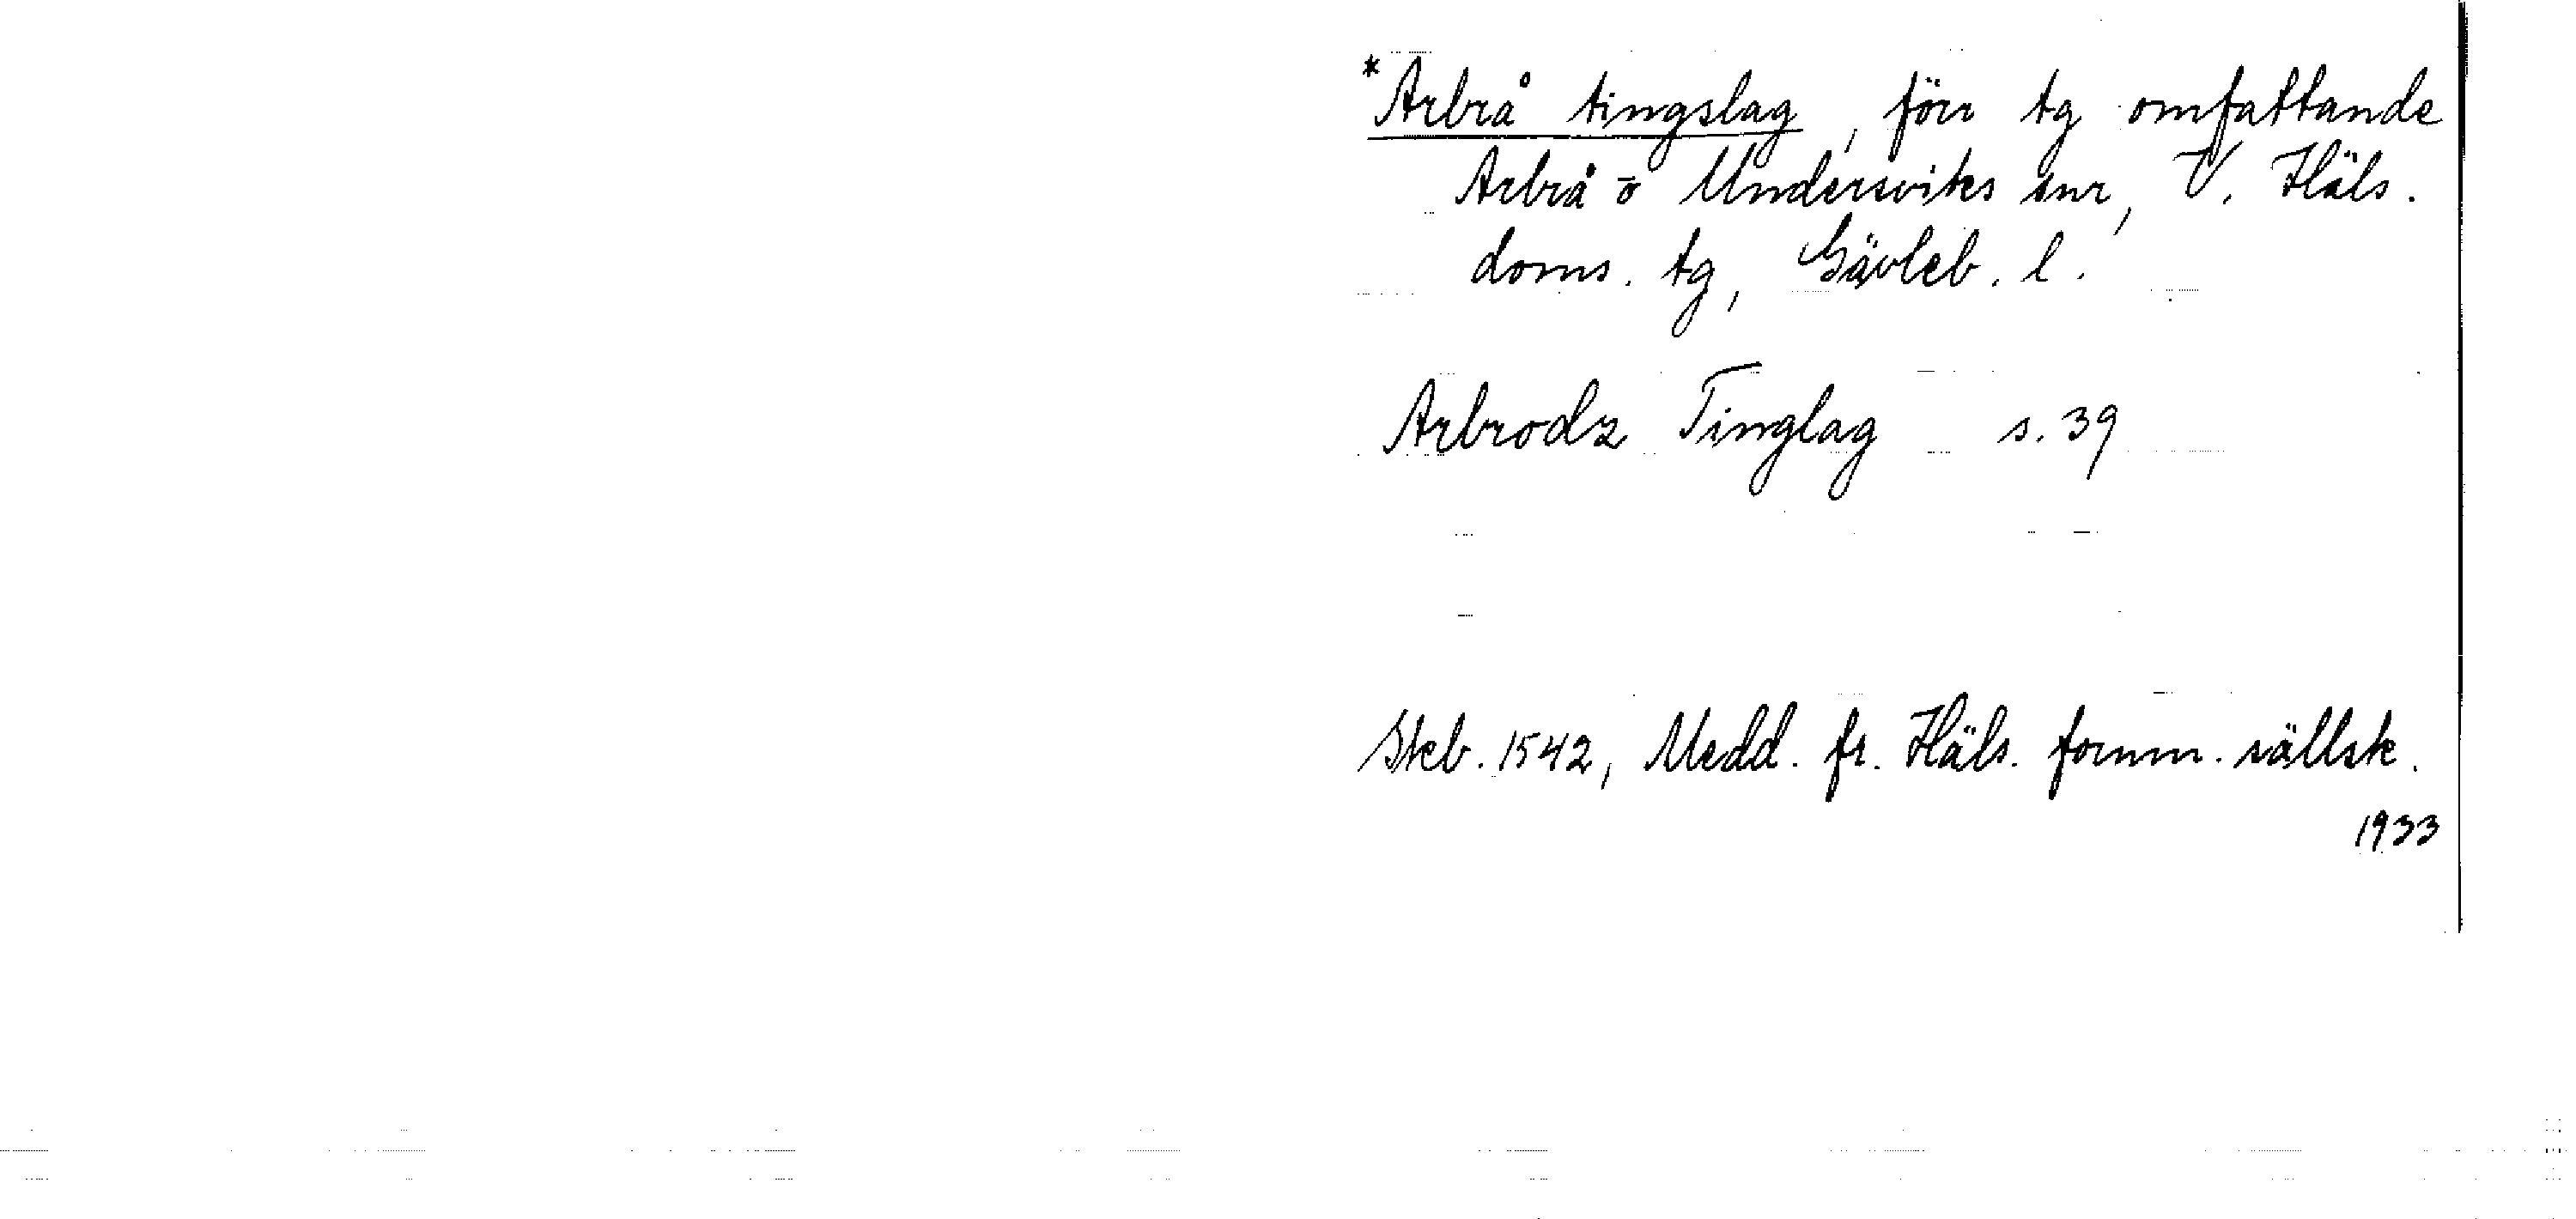 *Arbrå tingslag, förr tg omfattande
Arbrå o Undersviks snr, V. Häls.
doms. tg, Gävleb. l.
Arbrodz Tinglag s. 39
Skb. 1542, Medd. fr. Häls. fornm. sällsk.
1933